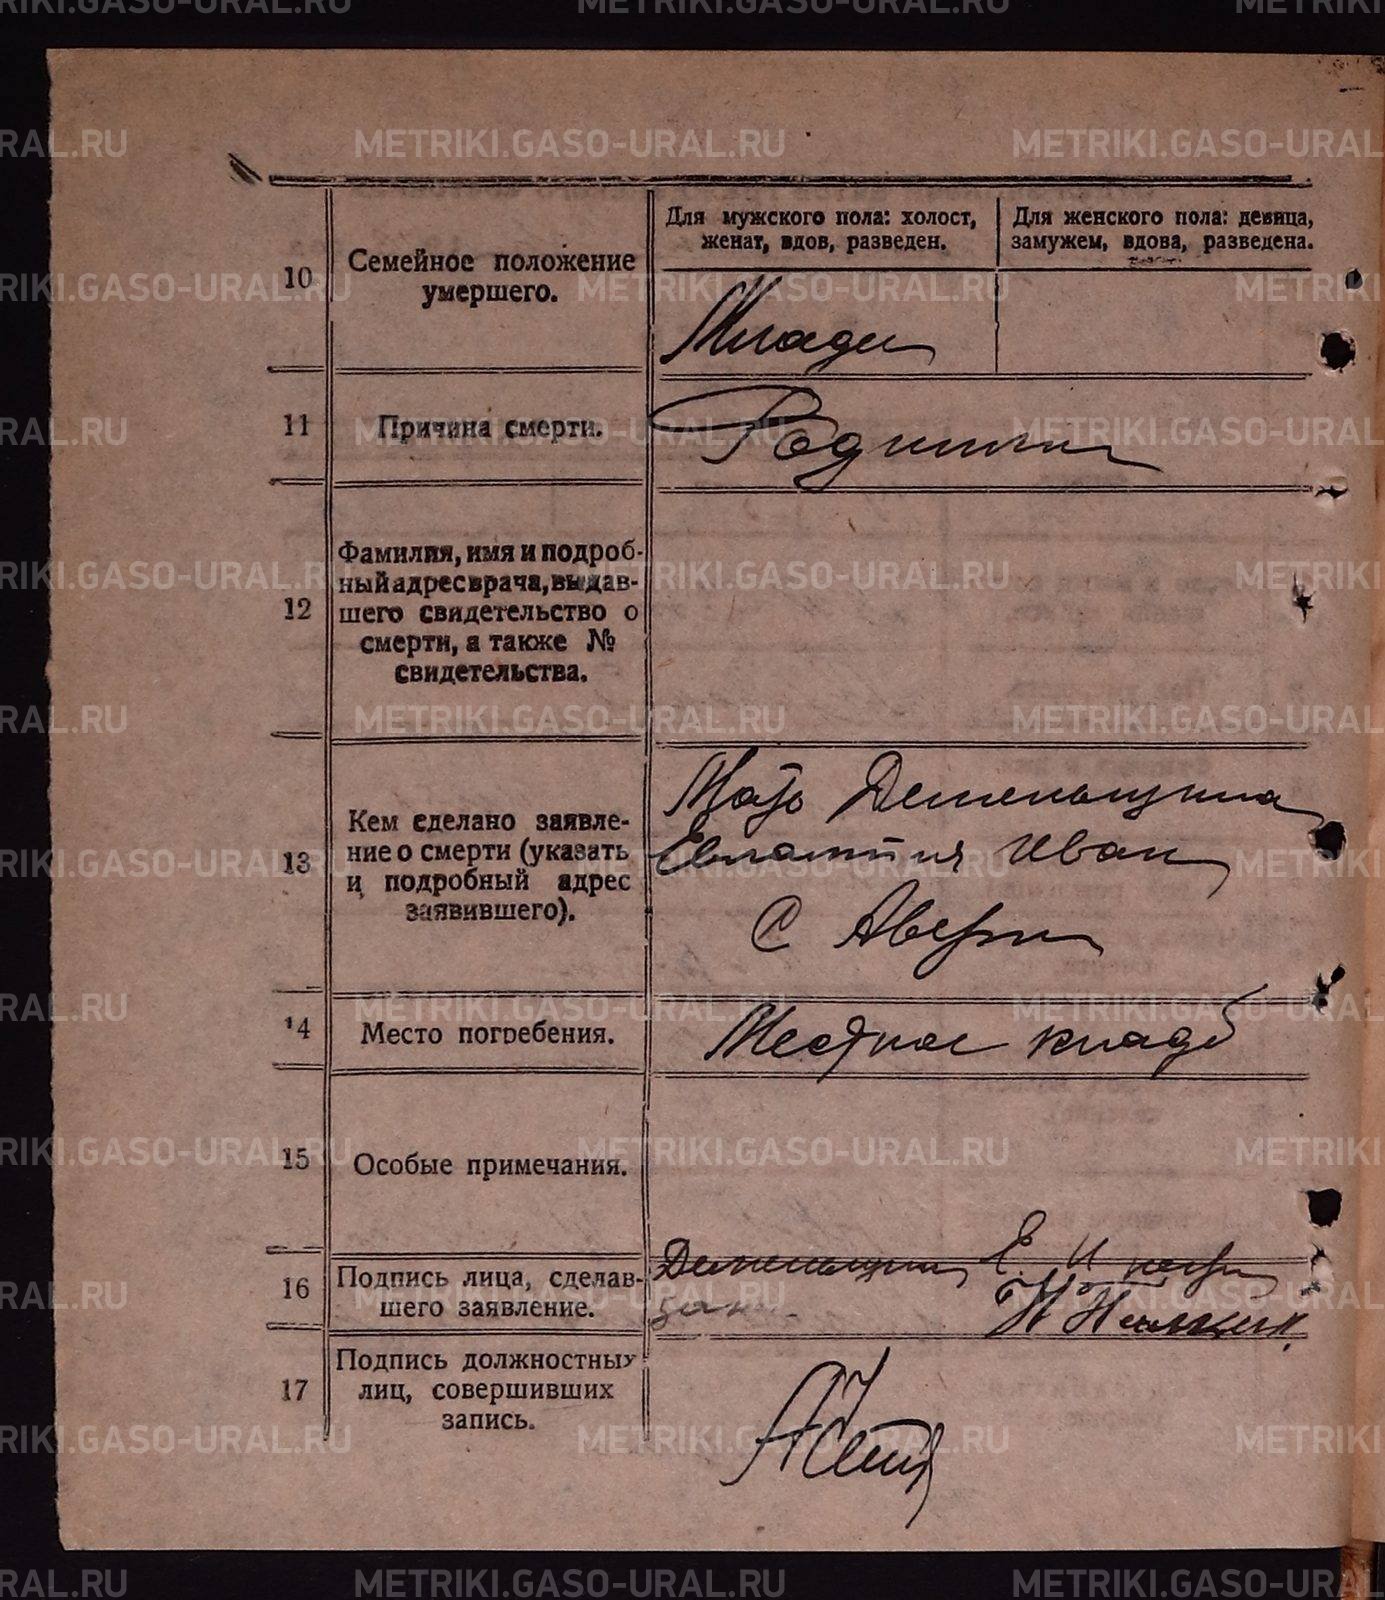 Для мужского пола: холост,
женат, вдов, разведен.
Для женского пола: девица,
замужем, вдова, разведена.
10
Семейное положение
умершего.
Младен
11
Причина смерти.
Родимчик
12
Фамилия, имя и подроб-
ный адрес врача, выдав-
шего свидетельство о
смерти, а также №
свидетельства.
13
Кем сделано заявле-
ние о смерти (указать
и подробный адрес
заявившего).
Мать Деменьшина
Евлампия Иван
С Аверин
14
Место погребения.
Местное кладб
15
Особые примечания.
16
Подпись лица, сделав-
шего заявление.
Деменьшин Е. И негр
за н
17
Подпись должностных
лиц, совершивших
запись.
METRIKI.GASO-URAL.RU